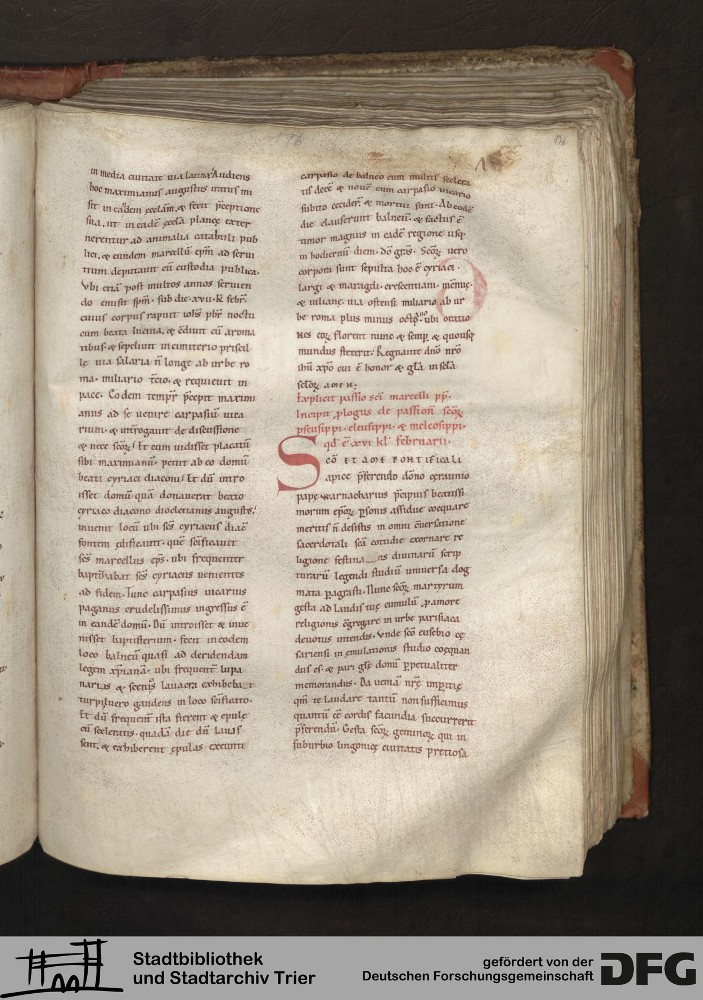 in media ciuitate uia lata. Audiens
hoc maximianus augustus iratus mi
sit in eadem ecclam. & fecit pceptione
sua. ut in eadē eccla plancę exter
nerentur ad animalia catabuli pub
lici. & eundem marcellū epm ad serui
tium deputauit cū custodia publica.
Vbi etiā post multos annos seruien
do emisit spm. sub die .xvii. kł febr.
cuius corpus rapuit iohs pbr noctu
cum beata lucina, & cdiunt cū aroma
tibus. & sepeliunt in cimiterio priscil
le uia salaria n̄ longe ab urbe ro
ma. miliario tcio. & requieuit in
pace. Eodem tempr pcepit maximi
anus ad se uenire carpasiū uica
rium. & utrogauit de discussione
& nece scoꝝ. Et cum uidisset placatū
sibi maximianū. petiit ab eo domū
beati cyriaci diaconi. Et dū intro
isset domū quā donauerat beato
cyriaco diacono dioclecianus augustus.
inuenit locū ubi scs cyriacus diac̄
fontem ędificauit. quē scificauit
scs marcellus eps. ubi frequenter
baptizabat scs cyriacus uenientes
ad fidem. Tunc carpasius uicarius
paganus crudelissimus ingressus ē
in eandē domū. Dū introisset & inue
nisset baptisterium. fecit in eodem
loco balneū quasi ad deridendam
legem xpianā. ubi frequent lupa
naria & secr̄is lauacra exhibebat
turpit uero gaudens in loco scificato.
Et dū frequent ista fierent & epulę
cū sceleratis. quadā die dū lauis
sent. & exhiberent epulas exeunti
136
carpasio de balneo cum multis scelera
tis decē & nouē cum carpasio uicario
subito cecider. & mortui sunt. Ab eodē
die clauserunt balneū. & factus ē
timor magnus in eadē regione usq.
in hodiernū diem. dō gras. Scoꝝ uero
corpora sunt sepulta hoc ē cyriaci.
largi & maragdi. crescentiani. memię.
& iulianę. uia ostensi. miliario ab ur
be roma plus minus octauo. ubi oratio
nes eoꝝ florent nunc & semp. & quousq
mundus steterit. Regnante dno nro
ihu xpo cui ē honor & gla in scla
scloꝝ. AMEN;
Explicit passio sci marcelli pp.
Incipit plogus de passion scoꝝ
pseusippi. eleusippi. & meleosippi.
qd ē .xvi. kł. februarii.
Sco ET A ME PONTIFICALI
apice pferendo dōno ceraunio
pape warnacharius pcipuis beatissi
morum epoꝝ psonis assidue coequare
meritis n̄ desistis in omni cuersatione
sacerdotali scā cottidie exornare re
ligione festinans diuinarū scrip
turarū legendi studiū uniuersa dog
mata pagrasti. Nunc scoꝝ martyrum
gesta ad laudis tuę cumulū p amore
religionis cgregare in urbe parisiaca
deuotus intendis. Vnde scō eusebio ce
sariensi in emulationis studio coequan
dus es. & pari glę donū ppetualiter
memorandus. Da ueniā nrę impitię
qm te laudare tantū non sufficimus
quantū ee cordis facundia succurrerit
pferendū. Gesta scoꝝ geminoꝝ qui in
suburbio lingonicę ciuitatis pretiosa
Stadtbibliothek
und Stadtarchiv Trier
gefördert von der
Deutschen Forschungsgemeinschaft
DFG